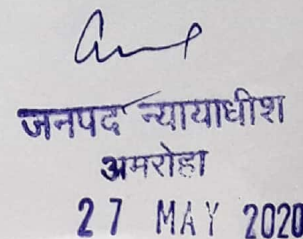 जनपद न्यायाधीश
अमरोहा
27 MAY 2020